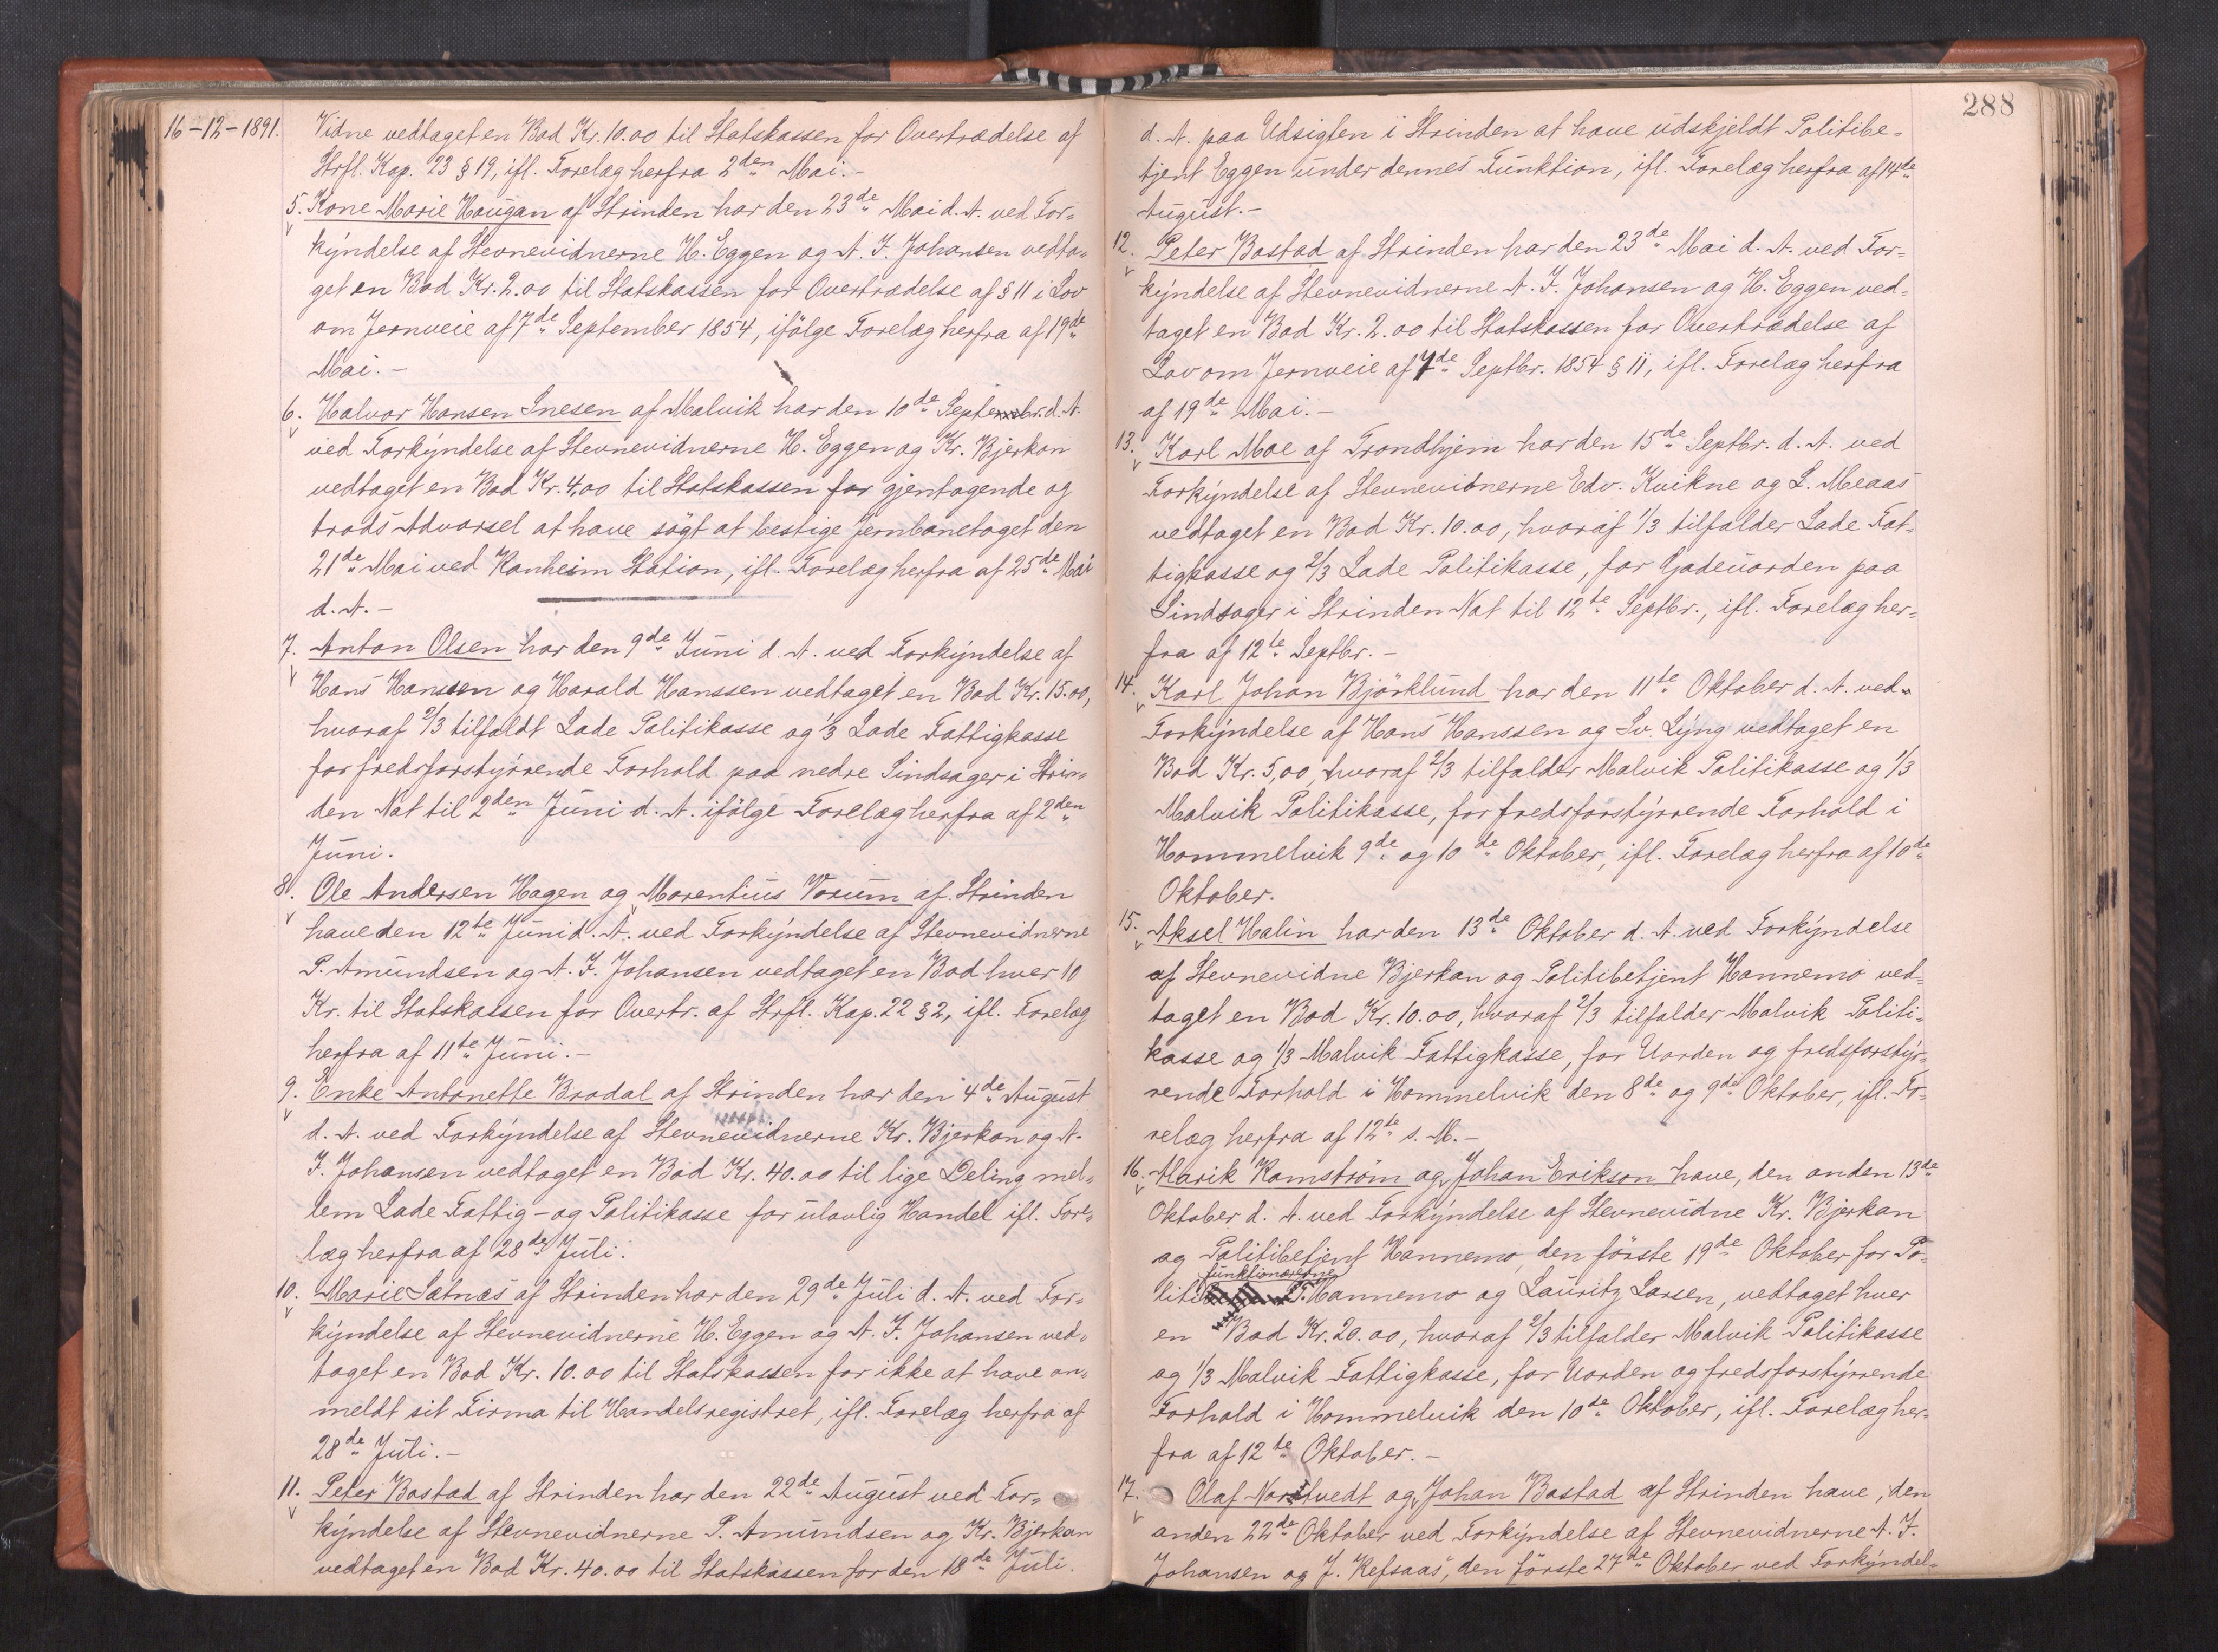 16-12-1891.
Vidne vedtaget en Bod Kr. 10.00 til Statskassen for Overtrædelse af
Strfl. Kap. 23 § 19, ifl. Forelæg herfra 2den Mai.-
5. Kone Marie Haugan af Strinden har den 23de Mai d. A. ved For=
kyndelse af Stevnevidnerne H. Eggen og A. J. Johansen vedta=
get en Bod Kr. 2.00 til Statskassen for Overtrædelse af § 11 i Lov
om Jernveie af 7de September 1854, ifölge Forelæg herfra af 19de
Mai.-
6. Halvor Hansen Snesen af Malvik har den 10de Septembr. d. A.
ved Forkyndelse af Stevnevidnerne H. Eggen og Kr. Bjerkan
vedtaget en Bod Kr. 4,00 til Statskassen for gjentagende og
trods Advarsel at have sögt at bestige Jernbanetoget den
21de Mai ved Ranheim Station, ifl. Forelæg herfra af 25de Mai
d. A.-
7. Anton Olsen har den 9de Juni d. A. ved Forkyndelse af
Hans Hanssen og Harald Hanssen vedtaget en Bod Kr. 15.00,
hvoraf 2/3 tilfaldt Lade Politikasse og 1/3 Lade Fattigkasse
for fredsforstyrrende Forhold paa nedre Sindsager i Strin=
den Nat til 2den Juni d. A. ifölge Forelæg herfra af 2den
Juni.
8. Ole Andersen Hagen og Morentius Vorum af Strinden
have den 12te Juni d. A. ved Forkyndelse af Stevnevidnerne
P. Amundsen og A. J. Johansen vedtaget en Bod hver 10
Kr. til Statskassen for Overtr. af Strfl. Kap. 22 § 2, ifl. Forelæg
herfra af 11te Juni.-
9. Enke Antonette Brodal af Strinden har den 4de August
d. A. ved Forkyndelse af Stevnevidnerne Kr. Bjerkan og A.
J. Johansen vedtaget en Bod Kr. 40.00 til lige Deling mel=
lem Lade Fattig- og Politikasse for ulovlig Handel ifl. Fore=
læg herfra af 28de Juli.
10. Marie Sætnæs af Strinden har den 29de Juli d. A. ved For=
kyndelse af Stevnevidnerne H. Eggen og A. J. Johansen ved=
taget en Bod Kr. 10.00 til Statskassen for ikke at have an=
meldt sit Firma til Handelsregistret, ifl. Forelæg herfra af
28de Juli.-
11. Peter Bostad af Strinden har den 22de August ved For=
kyndelse af Stevnevidnerne P. Amundsen og Kr. Bjerkan
vedtaget en Bod Kr. 40.00 til Statskassen for den 18de Juli.
288
d. A. paa Udsigten i Strinden at have udskjeldt Politibe=
tjent Eggen under dennes Funktion, ifl. Forelæg herfra af 14de
August.-
12. Peter Bostad af Strinden har den 23de Mai d. A. ved For=
kyndelse af Stevnevidnerne A. J. Johansen og H. Eggen ved=
taget en Bod Kr. 2.00 til Statskassen for Overtrædelse af
Lov om Jernveie af 7de Septbr. 1854 § 11, ifl. Forelæg herfra
af 19de Mai.-
13. Karl Moe af Trondhjem har den 15de Septbr. d. A. ved
Forkyndelse af Stevnevidnerne Edv. Kvikne og L. Meaas
vedtaget en Bod Kr. 10.00, hvoraf 1/3 tilfalder Lade Fat=
tigkasse og 2/3 Lade Politikasse, for Gadeuorden paa
Sindsager i Strinden Nat til 12te Septbr., ifl. Forelæg her=
fra af 12te Septbr.-
14. Karl Johan Björklund har den 11te Oktober d. A. ved
Forkyndelse af Hans Hanssen og Sv. Lyng vedtaget en
Bod Kr. 5,00, hvoraf 2/3 tilfalder Malvik Politikasse og 1/3
Malvik Politikasse, for fredsforstyrrende Forhold i
Hommelvik 9de og 10de Oktober, ifl. Forelæg herfra af 10de
Oktober.
15. Aksel Halin har den 13de Oktober d. A. ved Forkyndelse
af Stevnevidne Bjerkan og Politibetjent Hannemo ved=
taget en Bod Kr. 10.00, hvoraf 2/3 tilfalder Malvik Politi=
kasse og 1/3 Malvik Fattigkasse, for Uorden og fredsforstyr=
rende Forhold i Hommelvik den 8de og 9de Oktober, ifl. Fo=
relæg herfra af 12te s. M.-
16. Marik Ramström og Johan Erikson have, den anden 13de
Oktober d. A. ved Forkyndelse af Stevnevidne Kr. Bjerkan
og Politibetjent Hannemo, den förste 19de Oktober for Po=
funktionærerne
liti T. Hannemo og Lauritz Larsen, vedtaget hver
en Bod Kr. 20.00, hvoraf 2/3 tilfalder Malvik Politikasse
og 1/3 Malvik Fattigkasse, for Uorden og fredsforstyrrende
Forhold i Hommelvik den 10de Oktober, ifl. Forelæg her=
fra af 12te Oktober.-
17. Olaf Norstvedt og Johan Bostad af Strinden have, den
anden 22de Oktober ved Forkyndelse af Stevnevidnerne A. J.
Johansen og J. Refsaas, den förste 27de Oktober ved Forkyndel=